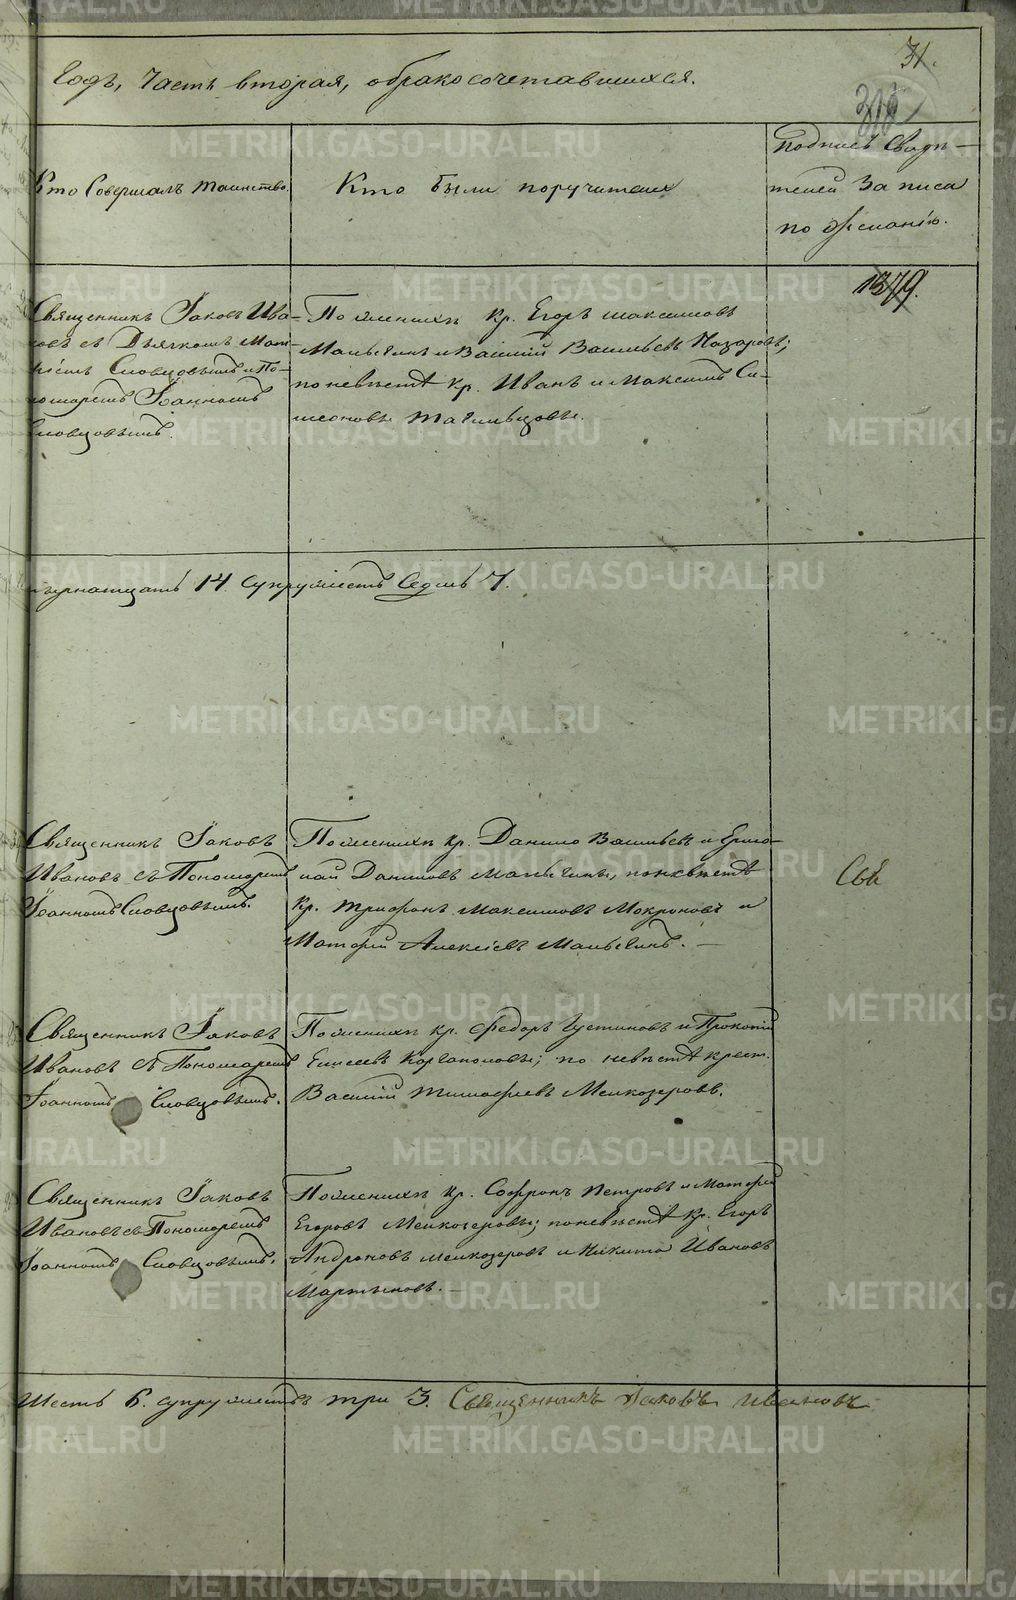 31.
Годъ, Часть вторая, о бракосочетавшихся.
318
Кто Совершалъ таинство.
Кто были поручители
Подпись Свидѣ-
телей записа
по желанію.
1379.
Священникъ Іаковъ Ива-
новъ съ Дьячкомъ
Словцовымъ и По-
номаремъ Іоанномъ
Словцовымъ.
По женихѣ Кр. Егоръ Максимовъ
Мальгинъ и Василій Васильевъ Назаровъ;
по невѣстѣ Кр. Иванъ и Максимъ Си-
меоновы Тагильцовы.
14. супружествъ Седмь 7.
Священникъ Іаковъ
Ивановъ съ Пономаремъ
Іоанномъ Словцовымъ.
По женихѣ Кр. Данило Васильевъ и Ермо-
лай Даниловъ Мальгины, по невѣстѣ
Кр. Трифонъ Максимовъ Мокроновъ и
Матфей Алексѣевъ Мальгинъ. —
Священникъ Іаковъ
Ивановъ съ Пономаремъ
Іоанномъ Словцовымъ.
По женихѣ Кр. Федоръ Устиновъ и Прокопій
Елисеевъ Каргаполовы; по невѣстѣ Крест.
Василій Тимофѣевъ Мелкозеровъ.
Священникъ Іаковъ
Ивановъ съ Пономаремъ
Іоанномъ Словцовымъ.
По женихѣ Кр. Софронъ Петровъ и Матфей
Егоровъ Мелкозеровы; по невѣстѣ Кр. Егоръ
Андроновъ Мелкозеровъ и Никита Ивановъ
Мартыновъ. —
Шесть 6. супружествъ три 3. Священникъ Іаковъ Ивановъ
METRIKI.GASO-URAL.RU